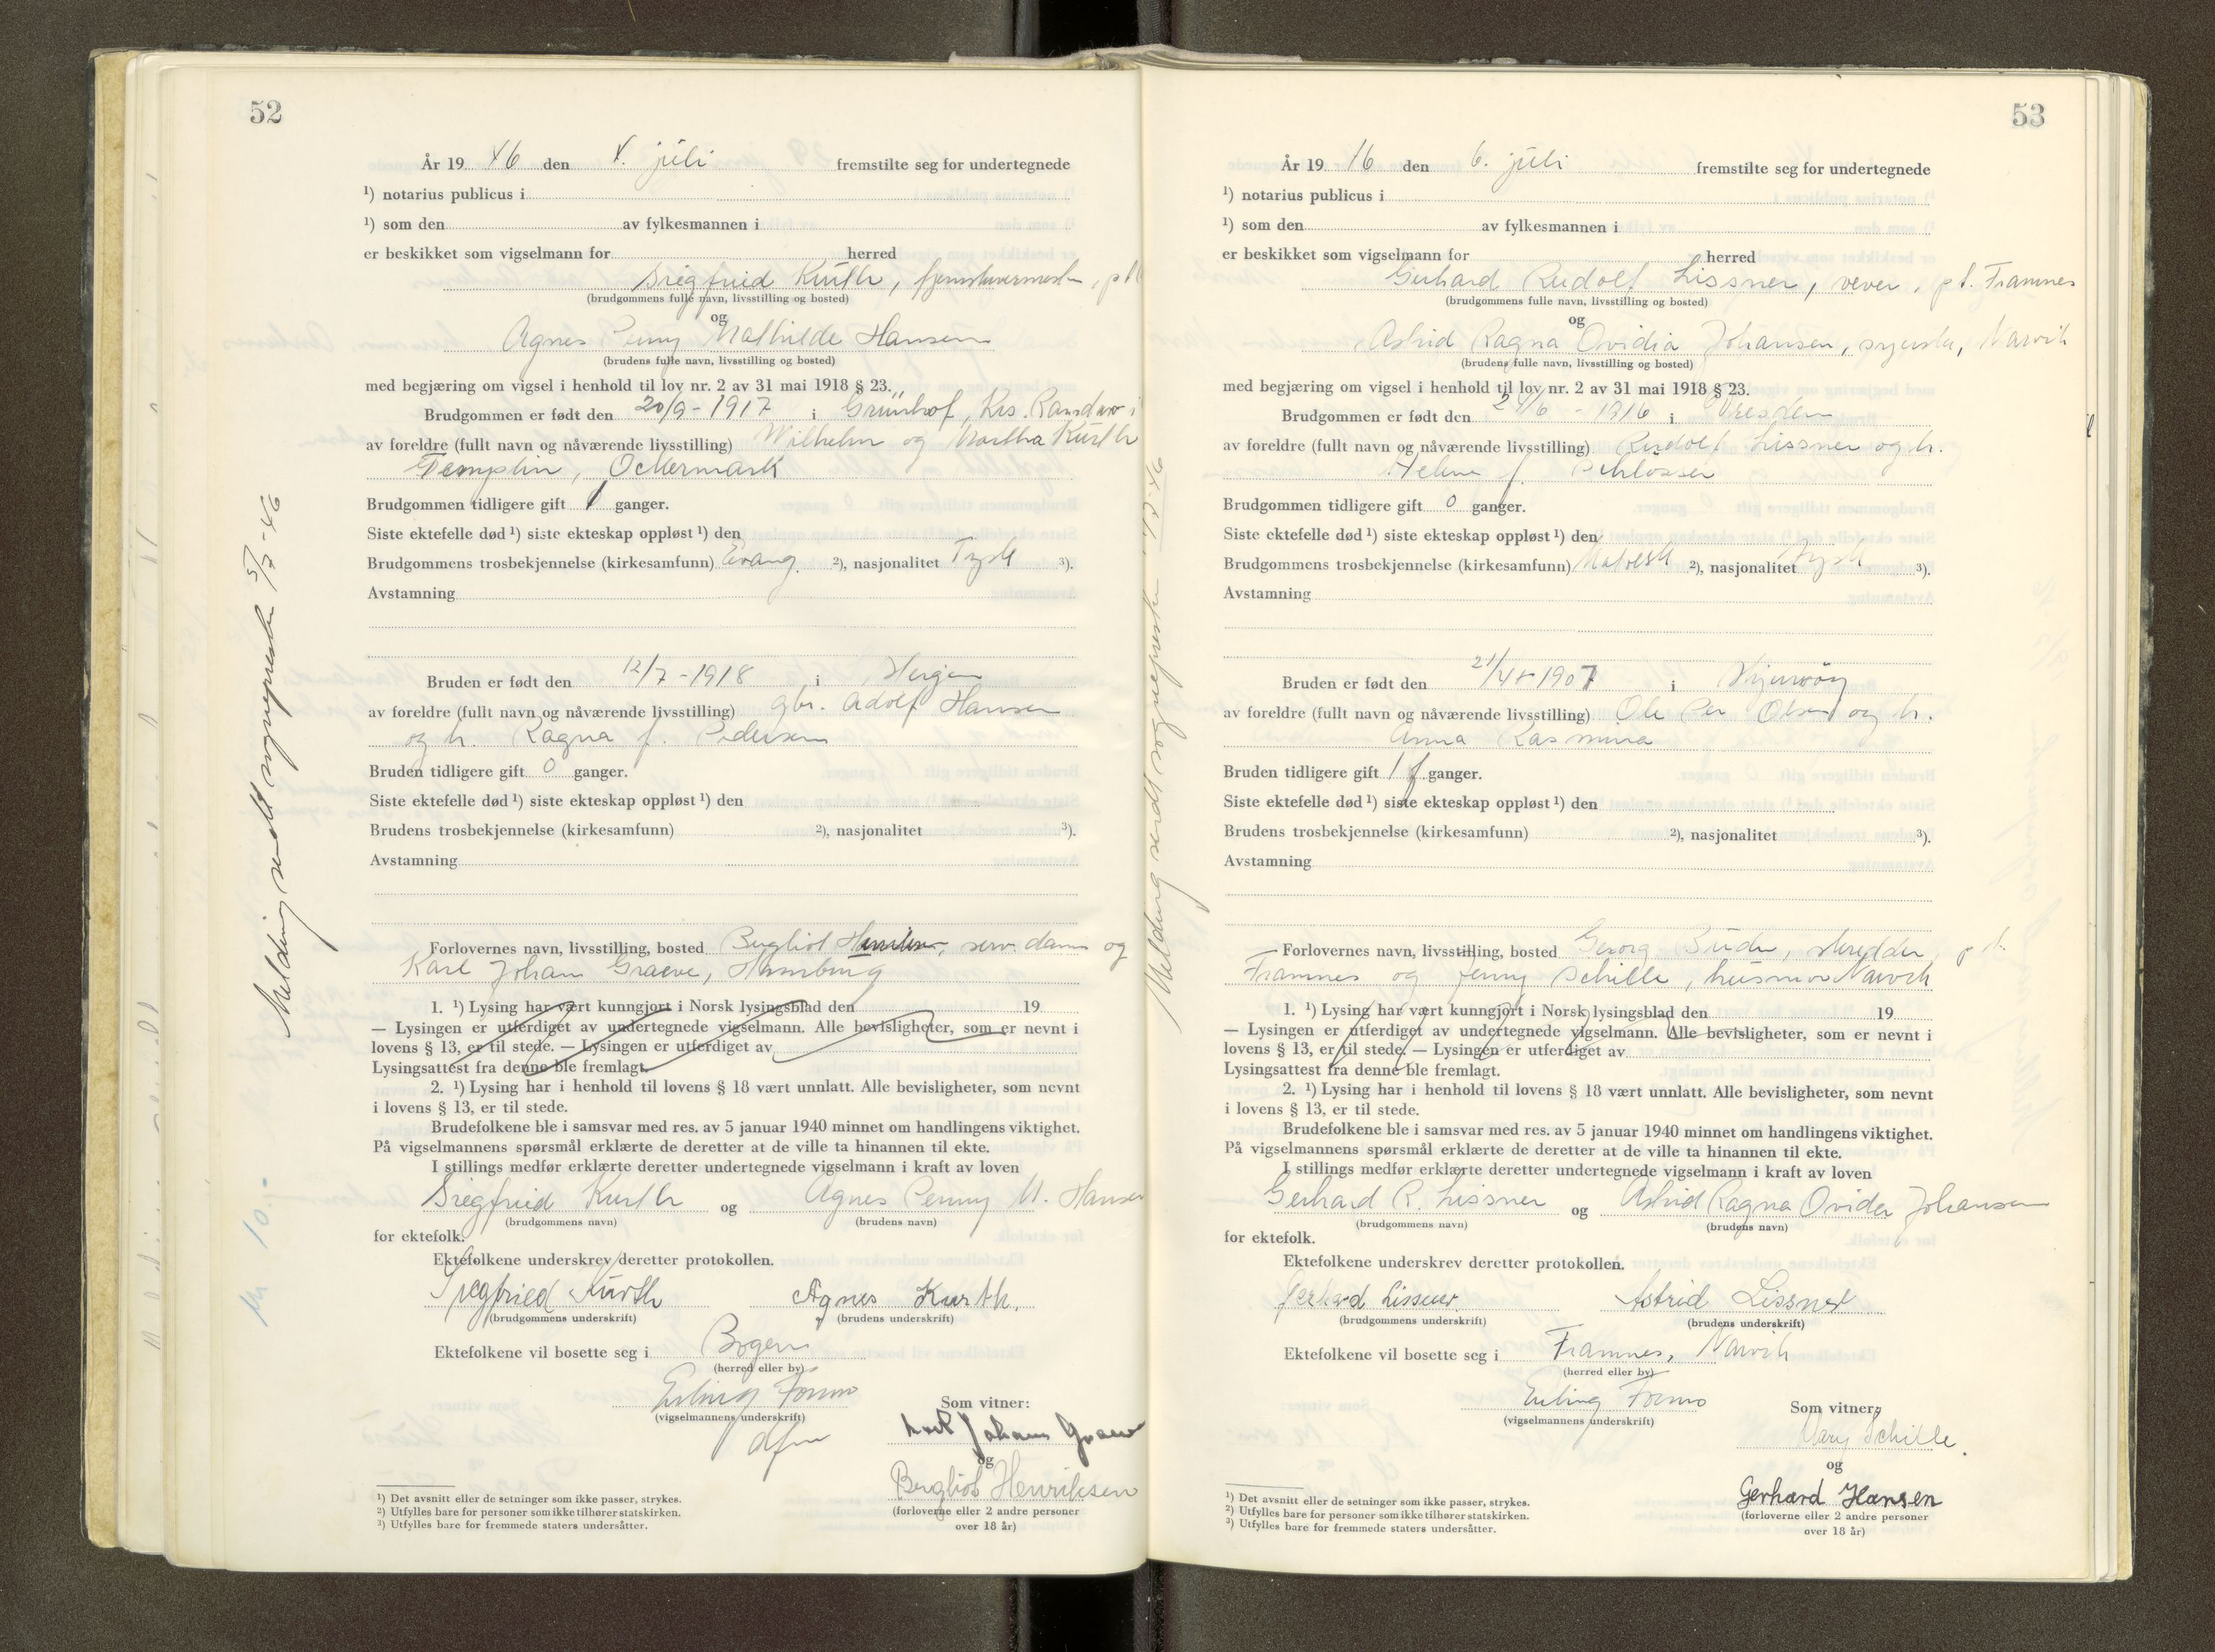 52
År 19 46 den 4. juli fremstilte seg for undertegnede
¹) notarius publicus i
¹) som den av fylkesmannen i
er beskikket som vigselmann for herred
Siegfried Kurth, pt
(brudgommens fulle navn, livsstilling og bosted)
og
Agnes Penny Mathilde Hansen
(brudens fulle navn, livsstilling og bosted)
med begjæring om vigsel i henhold til lov nr. 2 av 31 mai 1918 § 23.
Brudgommen er født den 20/9 - 1917 i Grünhof, Krs.
av foreldre (fullt navn og nåværende livsstilling) Wilhelm og Martha Kurth
Templin, Uckermark
Brudgommen tidligere gift 1 ganger.
Siste ektefelle død ¹) siste ekteskap oppløst ¹) den
Brudgommens trosbekjennelse (kirkesamfunn) Evang. ²), nasjonalitet Tysk ³).
Avstamning
Bruden er født den 12/7 - 1918 i
av foreldre (fullt navn og nåværende livsstilling) gbr. Adolf Hansen
og h. Ragna f. Pedersen
Bruden tidligere gift 0 ganger.
Siste ektefelle død ¹) siste ekteskap oppløst ¹) den
Brudens trosbekjennelse (kirkesamfunn) ²), nasjonalitet ³).
Avstamning
Forlovernes navn, livsstilling, bosted Bergliot Henriksen, serv. dame og
Karl Johan Graeve, Hamburg
1. ¹) Lysing har vært kunngjort i Norsk lysingsblad den 19
— Lysingen er utferdiget av undertegnede vigselmann. Alle bevisligheter, som er nevnt i
lovens § 13, er til stede. — Lysingen er utferdiget av
Lysingsattest fra denne ble fremlagt.
2. ¹) Lysing har i henhold til lovens § 18 vært unnlatt. Alle bevisligheter, som nevnt
i lovens § 13, er til stede.
Brudefolkene ble i samsvar med res. av 5 januar 1940 minnet om handlingens viktighet.
På vigselmannens spørsmål erklærte de deretter at de ville ta hinannen til ekte.
I stillings medfør erklærte deretter undertegnede vigselmann i kraft av loven
Siegfried Kurth og Agnes Penny M. Hansen
(brudgommens navn) (brudens navn)
for ektefolk.
Ektefolkene underskrev deretter protokollen.
Siegfried Kurth Agnes Kurth.
(brudgommens underskrift) (brudens underskrift)
Ektefolkene vil bosette seg i Bogen
(herred eller by)
Erling Formo
(vigselmannens underskrift)
dfm
Som vitner:
Karl Johann Graeve
og
Bergliot Henriksen
(forloverne eller 2 andre personer
over 18 år)
¹) Det avsnitt eller de setninger som ikke passer, strykes.
²) Utfylles bare for personer som ikke tilhører statskirken.
³) Utfylles bare for fremmede staters undersåtter.
Melding sendt sognepresten 5/7-46
kr 10.-
53
År 19 46 den 6. juli fremstilte seg for undertegnede
¹) notarius publicus i
¹) som den av fylkesmannen i
er beskikket som vigselmann for herred
Gerhard Rudolf Lissner, vever, pt. Framnes
(brudgommens fulle navn, livsstilling og bosted)
og
Astrid Ragna Ovidia Johansen, syerske, Narvik
(brudens fulle navn, livsstilling og bosted)
med begjæring om vigsel i henhold til lov nr. 2 av 31 mai 1918 § 23.
Brudgommen er født den 24/6 - 1916 i Dresden
av foreldre (fullt navn og nåværende livsstilling) Rudolf Lissner og h.
Helene f. Schlosser
Brudgommen tidligere gift 0 ganger.
Siste ektefelle død ¹) siste ekteskap oppløst ¹) den
Brudgommens trosbekjennelse (kirkesamfunn) Katolsk ²), nasjonalitet Tysk ³).
Avstamning
Bruden er født den 21/4 - 1907 i
av foreldre (fullt navn og nåværende livsstilling) Ole Per Olsen og h.
Anna Rasmina
Bruden tidligere gift 1 ganger.
Siste ektefelle død ¹) siste ekteskap oppløst ¹) den
Brudens trosbekjennelse (kirkesamfunn) ²), nasjonalitet ³).
Avstamning
Forlovernes navn, livsstilling, bosted Georg skredder pt.
Framnes og Jenny Schille, husmor Narvik
1. ¹) Lysing har vært kunngjort i Norsk lysingsblad den 19
— Lysingen er utferdiget av undertegnede vigselmann. Alle bevisligheter, som er nevnt i
lovens § 13, er til stede. — Lysingen er utferdiget av
Lysingsattest fra denne ble fremlagt.
2. ¹) Lysing har i henhold til lovens § 18 vært unnlatt. Alle bevisligheter, som nevnt
i lovens § 13, er til stede.
Brudefolkene ble i samsvar med res. av 5 januar 1940 minnet om handlingens viktighet.
På vigselmannens spørsmål erklærte de deretter at de ville ta hinannen til ekte.
I stillings medfør erklærte deretter undertegnede vigselmann i kraft av loven
Gerhard R. Lissner og Astrid Ragna Ovidia Johansen
(brudgommens navn) (brudens navn)
for ektefolk.
Ektefolkene underskrev deretter protokollen.
Gerhard Lissner. Astrid Lissner
(brudgommens underskrift) (brudens underskrift)
Ektefolkene vil bosette seg i Framnes, Narvik
(herred eller by)
Erling Formo
(vigselmannens underskrift)
Som vitner:
Mary Schille.
og
Gerhard Hansen
(forloverne eller 2 andre personer
over 18 år)
¹) Det avsnitt eller de setninger som ikke passer, strykes.
²) Utfylles bare for personer som ikke tilhører statskirken.
³) Utfylles bare for fremmede staters undersåtter.
Melding sendt sognepresten